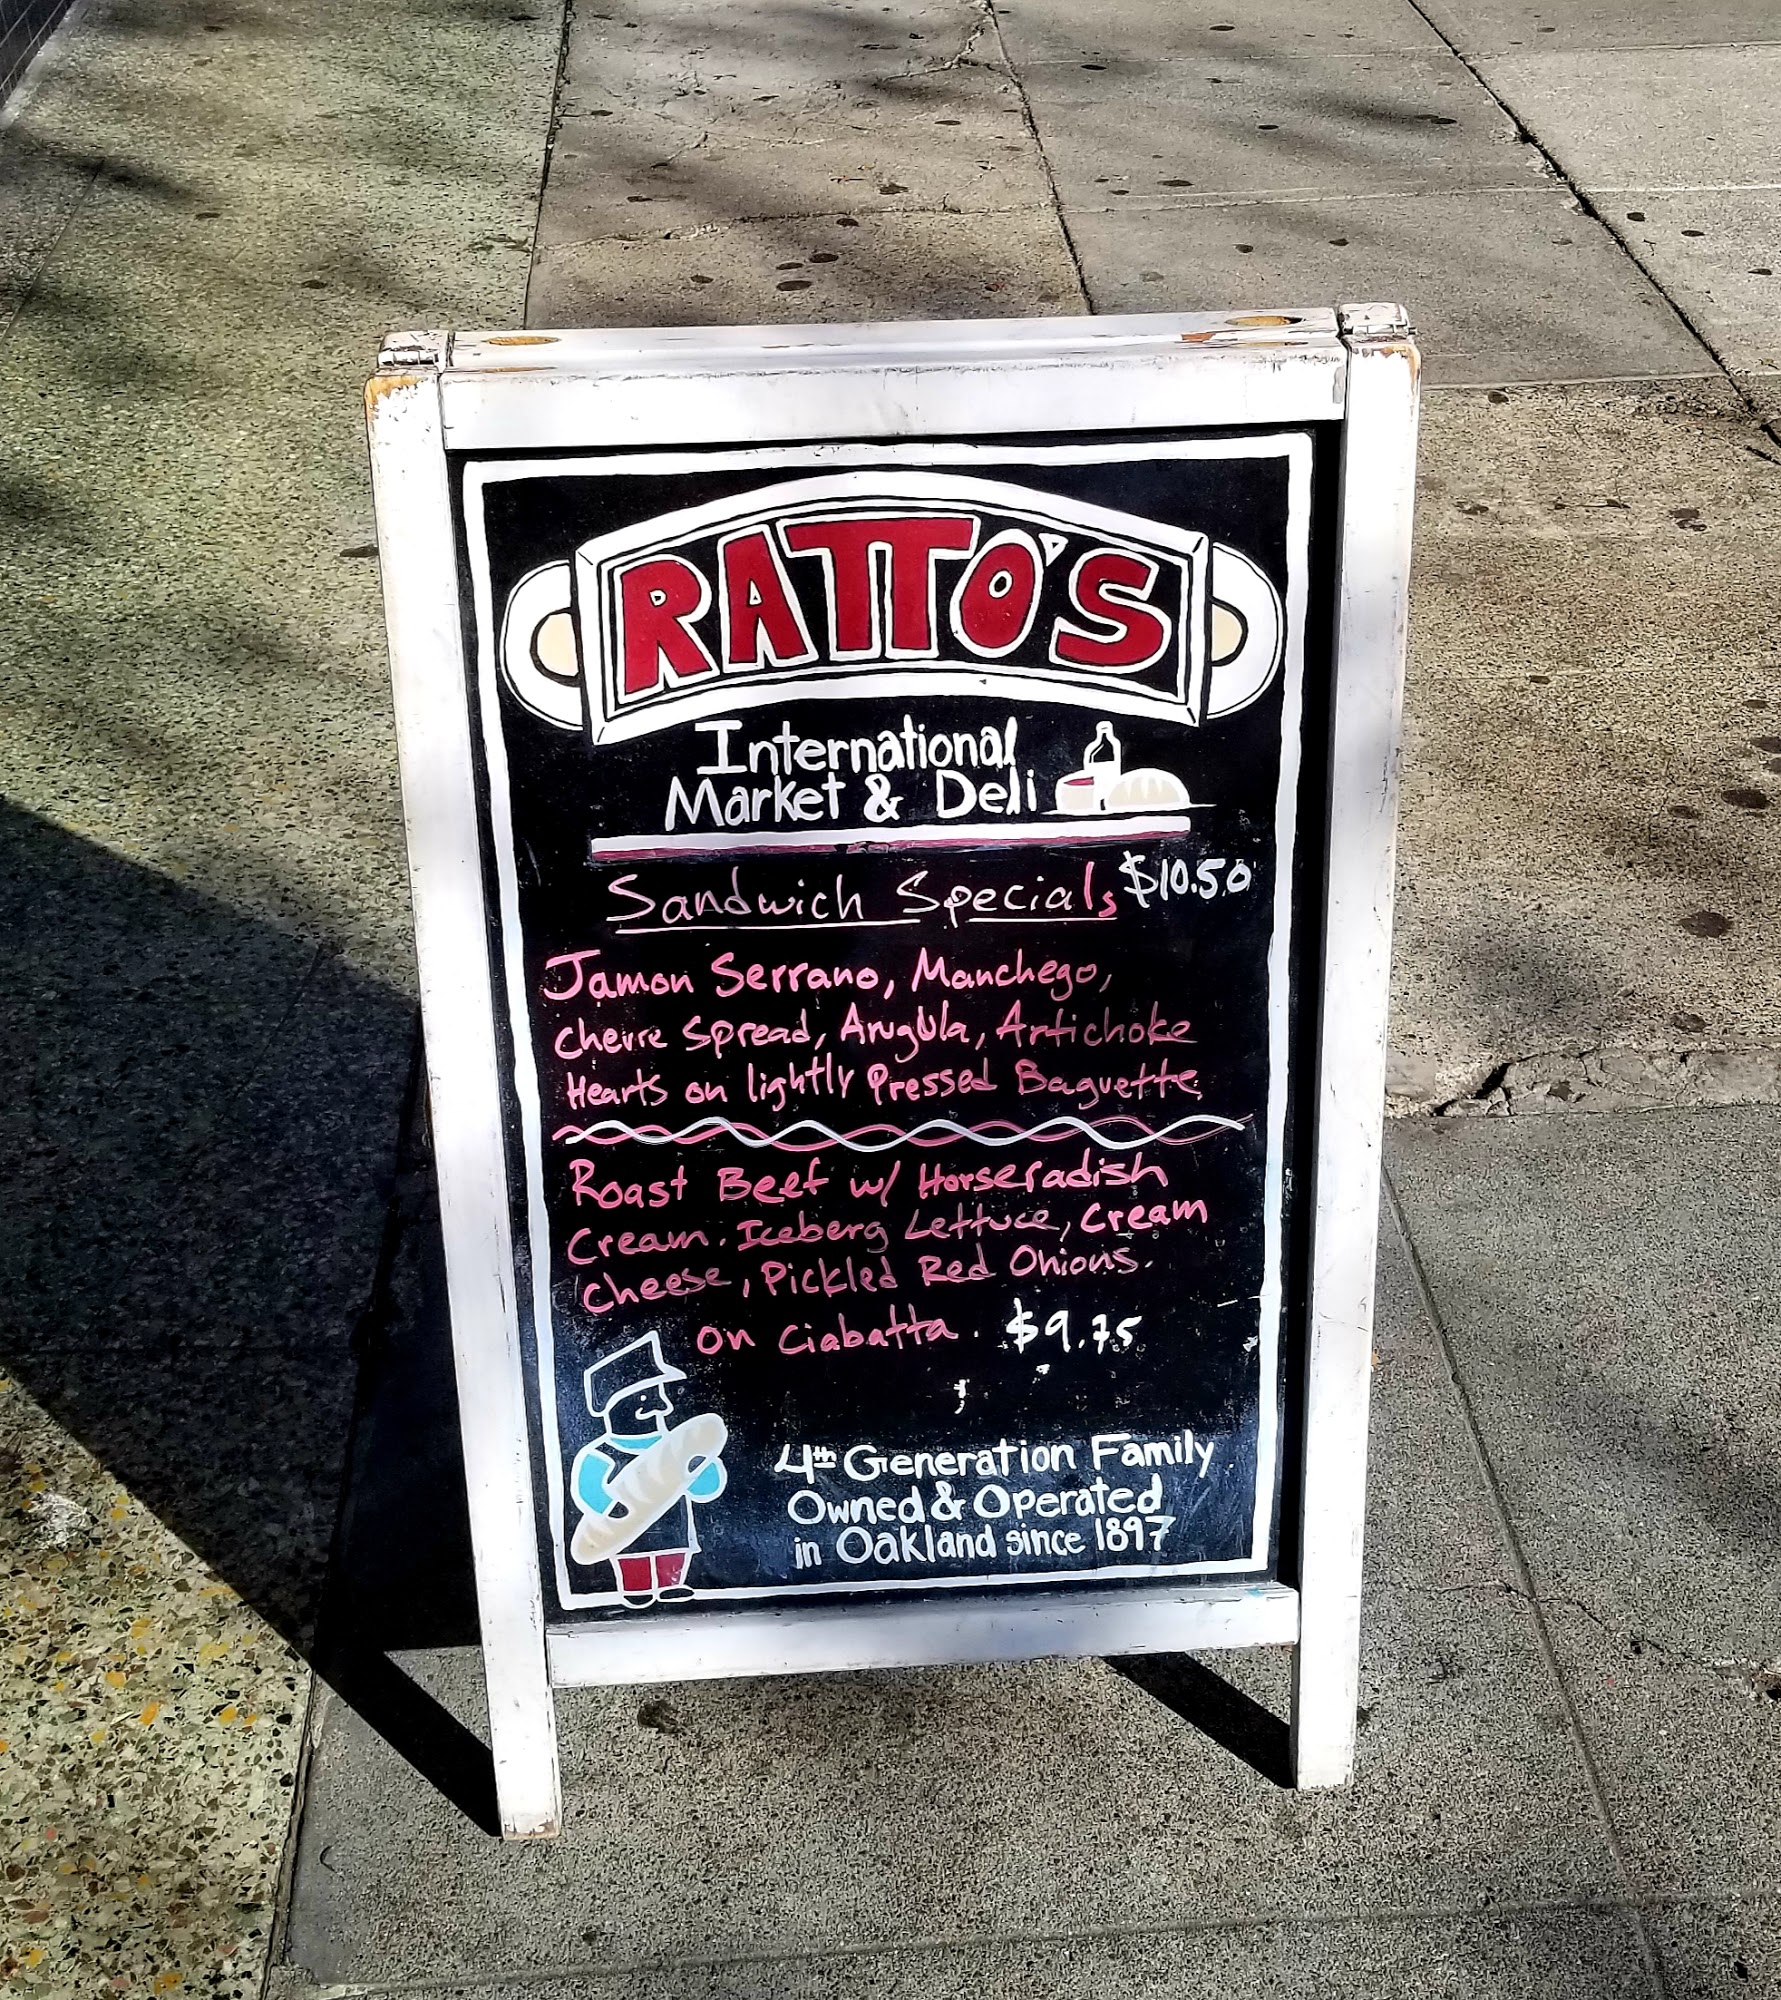 RATTO'S
International
Market & Deli
Sandwich Specials $10.50
Jamon Serrano, Manchego,
Chevre Spread, Arugula, Artichoke
Hearts on lightly Pressed Baguette.
Roast Beef w/ Horseradish
Cream. Iceberg Lettuce, Cream
Cheese, Pickled Red Onions.
on Ciabatta. $9.75
4th Generation Family
Owned & Operated
in Oakland since 1897